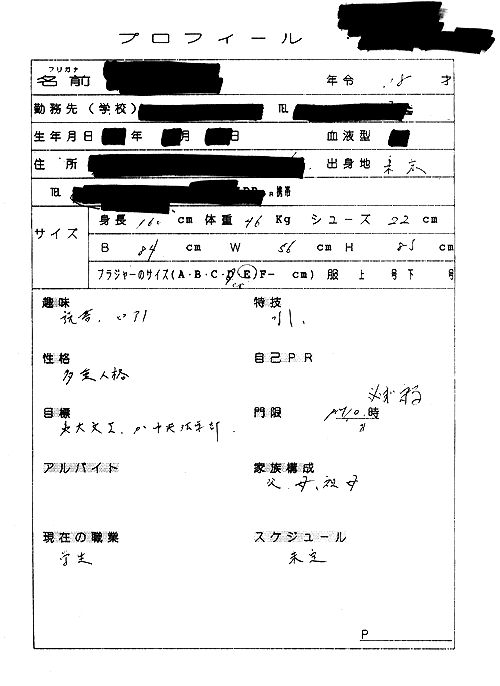 プロフィール
フリガナ
名前 年令 18 才
勤務先（学校） TEL
生年月日 年 月 日 血液型
住所 出身地 東京
TEL 携帯
サイズ 身長 160 cm 体重 46 Kg シューズ 22 cm
B 84 cm W 56 cm H 85 cm
ブラジャーのサイズ(A・B・C・D E F－ cm) 服 上 号 下 号
趣味 特技
読書、
性格 自己PR
多重人格
目標 門限 時
アルバイト 家族構成
父、母、祖母
現在の職業 スケジュール
学生 未定
P